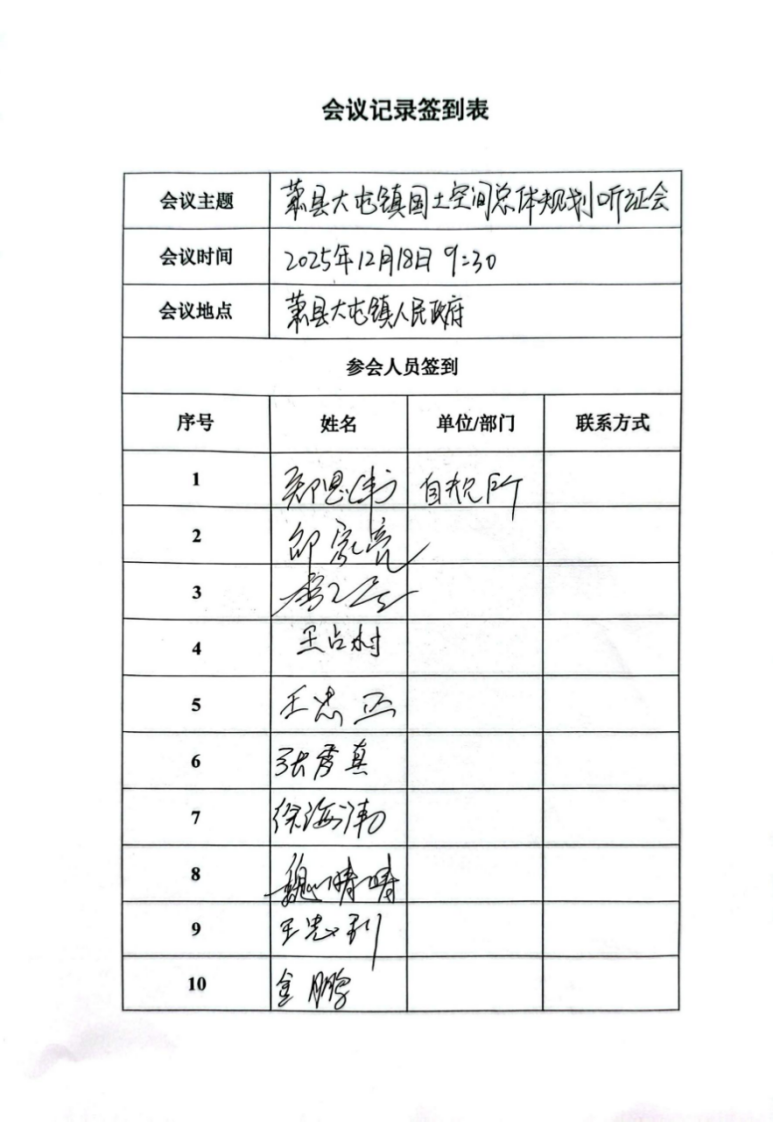 会议记录签到表
会议主题 萧县大屯镇国土空间总体规划听证会
会议时间 2025年12月18日 9:30
会议地点 萧县大屯镇人民政府
参会人员签到
序号 姓名 单位/部门 联系方式
1 郑恩伟 自规所
2 邵家亮
3
4 王占村
5 王忠
6 张秀真
7 徐海涛
8 魏晴晴
9 王忠利
10 金鹏